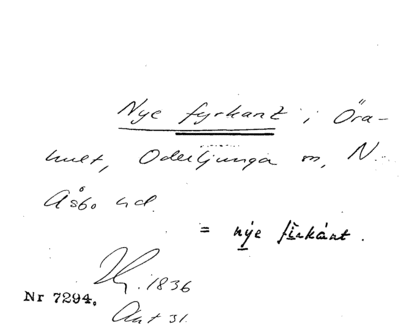 Nye fyrkant i Öra-
hult, Oderljunga sn, N.
Åsbo hd.
= nýe firkánt.
1836
Nr 7294.
Akt 31.